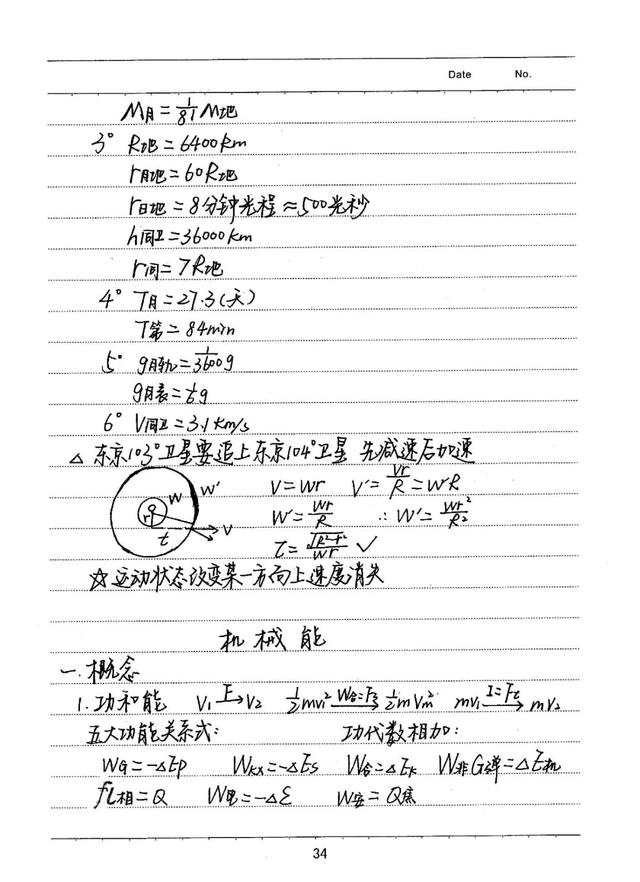 Date No.
M月=1/81 M地
3° R地=6400km
r月地=60R地
r日地=8分钟光程≈500光秒
h同卫=36000km
r同=7R地
4° T月=27.3(天)
T第=84min
5° g月轨=1/3600 g
g月表=1/6 g
6° V同卫=3.1km/s
△ 东京103°卫星要追上东京104°卫星 先减速后加速
V=Wr V'=Vr/R=W'R
W'=Wr/R ∴W'=Wr²/R²
t=√(R²-r²)/Wr ✓
r W W' t V
☆运动状态改变某一方向上速度消失
机械能
一.概念
1.功和能 V₁ F→ V₂ ½mv₁² W合=Fs→ ½mVm² mv₁ I=Ft→ mv₂
五大功能关系式: 功代数相加:
WG=-△Ep Wkx=-△Es W合=△Ek W非G弹=△E机
fL相=Q W电=-△ε W安=Q焦
34